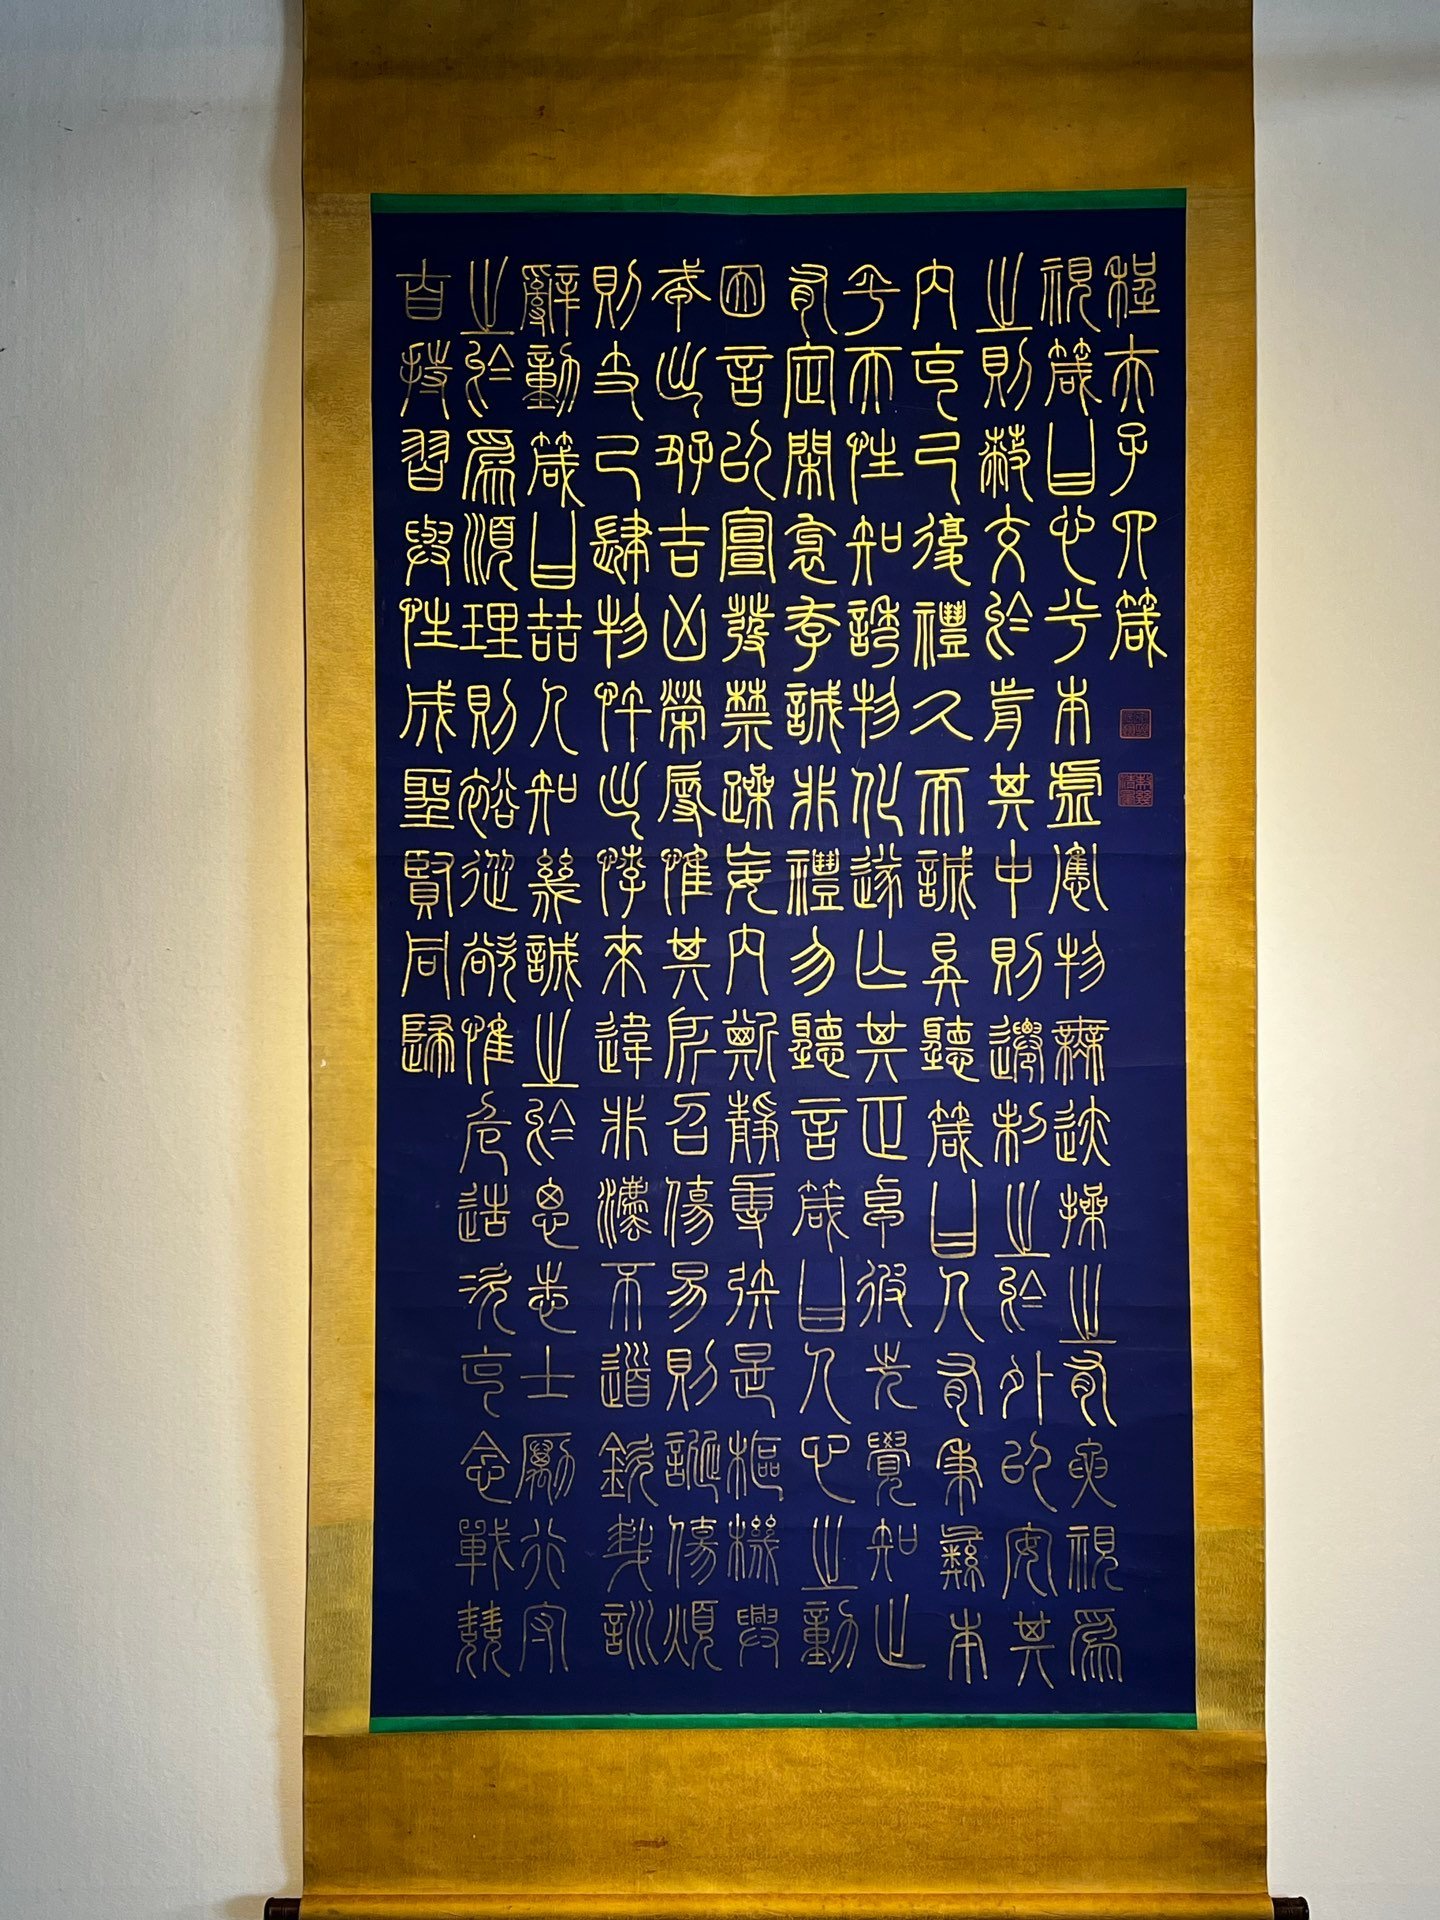 程夫子四箴
視箴曰心兮本虛應物無迹操之有要視為
之則蔽交於前其中則遷制之於外以安其
內克己復禮久而誠矣聽箴曰人有秉彝本
乎天性知誘物化遂亡其正卓彼先覺知止
有定閑邪存誠非禮勿聽言箴曰人心之動
因言以宣發禁躁妄內斯靜專矧是樞機興
戎出好吉凶榮辱惟其所召傷易則誕傷煩
則支己肆物忤出悖來違非法不道欽哉訓
辭動箴曰哲人知幾誠之於思志士勵行守
之於為順理則裕從欲惟危造次克念戰兢
自持習與性成聖賢同歸